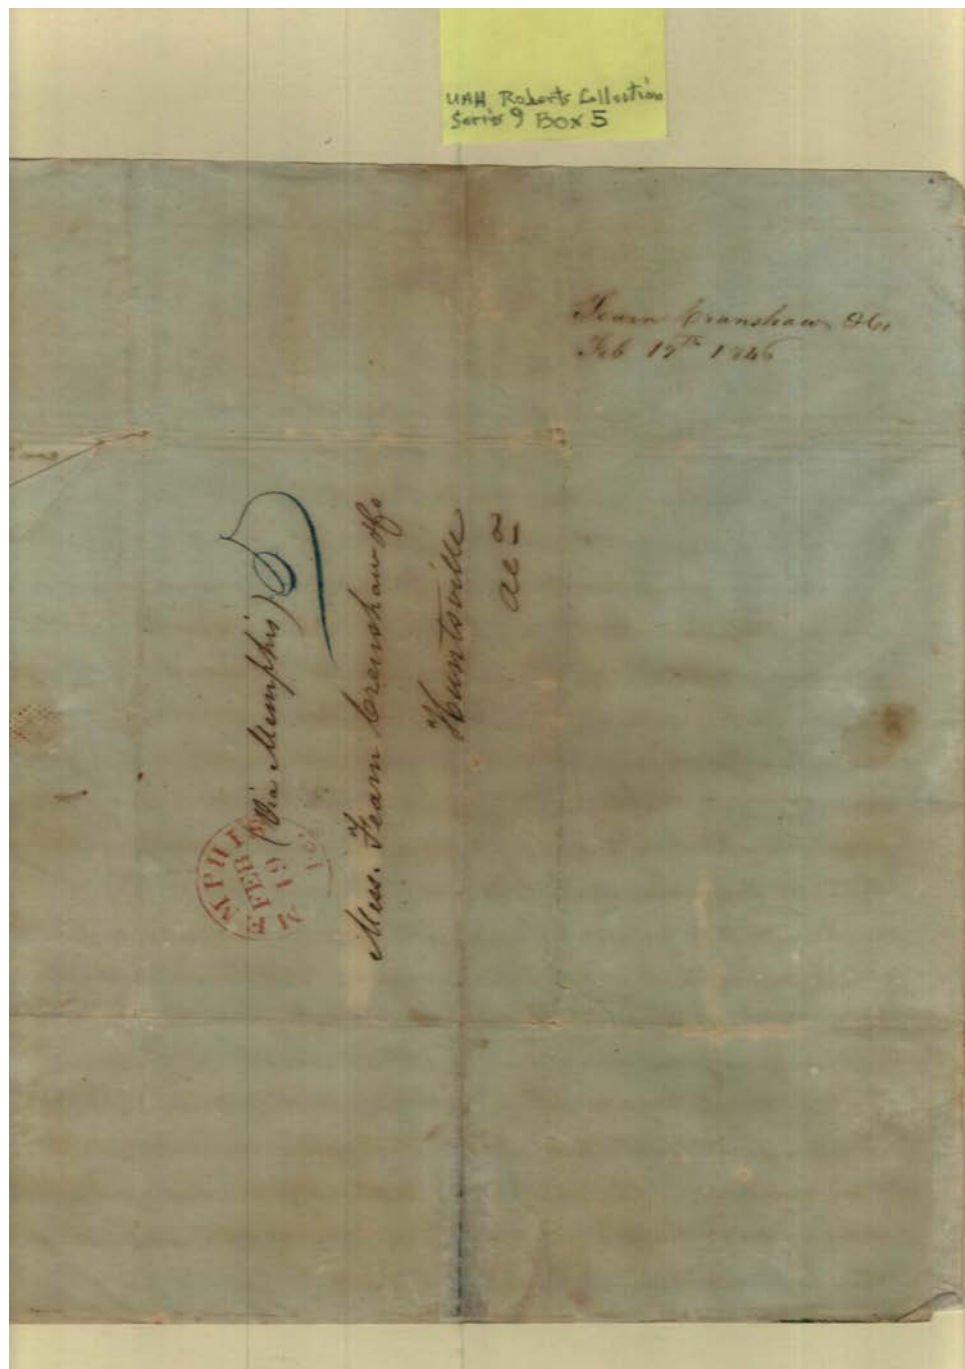 UAH Roberts Collection
Series 9 Box 5
Fearn Cranshaw &Co
Feb 17th 1846
(Via Memphis) 5
MEMPHIS
FEB
19
Mess. Fearn Crenshaw &Co
Huntsville
Ala